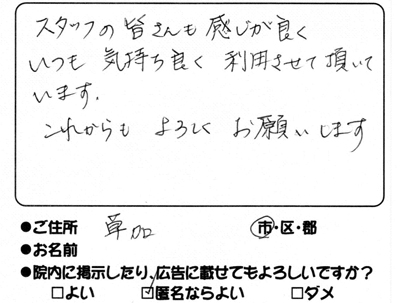 スタッフの皆さんも感じが良く
いつも気持ち良く利用させて頂いて
います.
これからもよろしくお願いします
●ご住所 草加 市・区・郡
●お名前
●院内に掲示したり、広告に載せてもよろしいですか?
□よい ☑匿名ならよい □ダメ